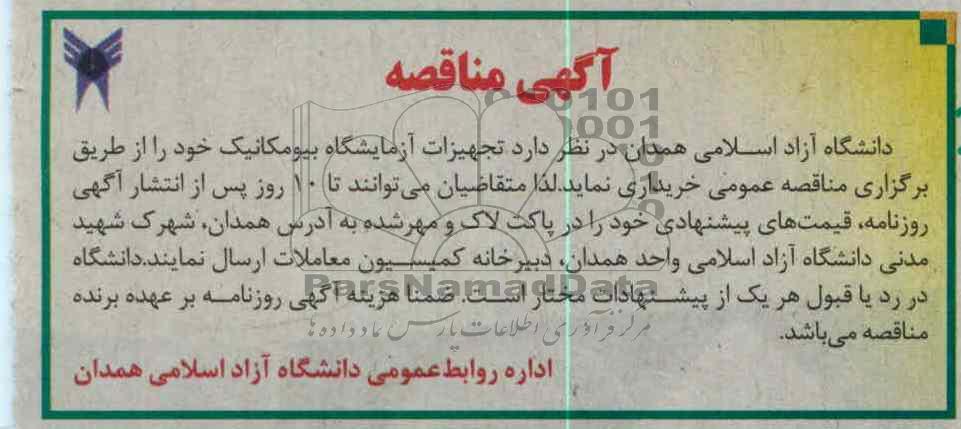 آگهی مناقصه
دانشگاه آزاد اسلامی همدان در نظر دارد تجهیزات آزمایشگاه بیومکانیک خود را از طریق
برگزاری مناقصه عمومی خریداری نماید.لذا متقاضیان می‌توانند تا ۱۰ روز پس از انتشار آگهی
روزنامه، قیمت‌های پیشنهادی خود را در پاکت لاک و مهرشده به آدرس همدان، شهرک شهید
مدنی دانشگاه آزاد اسلامی واحد همدان، دبیرخانه کمیسیون معاملات ارسال نمایند.دانشگاه
در رد یا قبول هر یک از پیشنهادات مختار است. ضمنا هزینه آگهی روزنامه بر عهده برنده
مناقصه می‌باشد.
اداره روابط عمومی دانشگاه آزاد اسلامی همدان
ParsNamadData
مرکز فرآوری اطلاعات پارس نماد داده ها